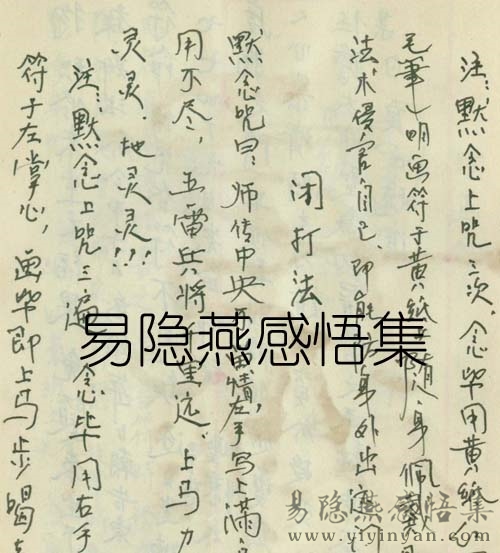 注：默念上咒三次，念毕用黄纸
毛筆 明画符于黄纸 随身佩
法术侵害自己，即能 身外出
闭打法
默念咒曰：师传中央 左手写上满
用不尽，五雷兵将 里远，上马力
灵灵，地灵灵!!!
注：默念上咒三遍 念毕用右手
符于左掌心，画毕即上马步
易隐燕感悟集
易隐燕感悟集
www.yiyinyan.com